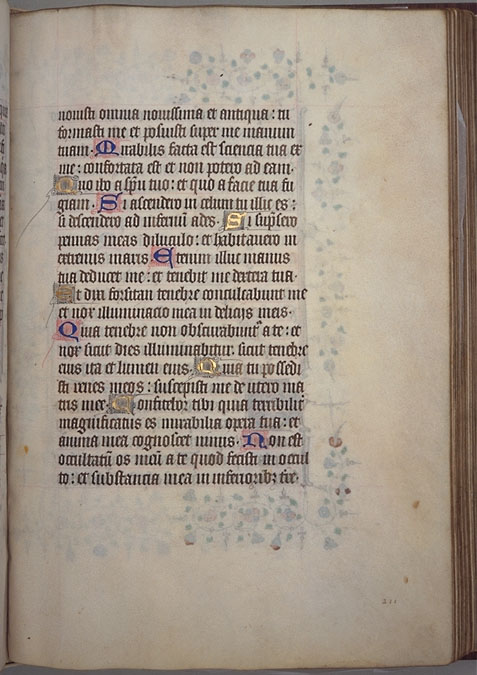 nouisti omnia nouissima et antiqua: tu
formasti me et posuisti super me manum
tuam. Mirabilis facta est sciencia tua ex
me: confortata est et non potero ad eam.
Quo ibo a spu tuo: et quo a facie tua fu
giam. Si ascendero in celum tu illic es:
si descendero ad infernū ades. Si supsero
pennas meas diluculo: et habitauero in
extremis maris. Etenim illuc manus
tua deducet me: et tenebit me dextera tua.
Et dixi forsitan tenebre conculcabunt me
et nox illuminacio mea in delicijs meis.
Quia tenebre non obscurabunt a te: et
nox sicut dies illuminabitur. sicut tenebre
eius ita et lumen eius. Quia tu possedi
sti renes meos: suscepisti me de utero ma
tris mee. Confitebor tibi quia terribilit
magnificatus es mirabilia opera tua: et
anima mea cognoscet nimis. Non est
occultatū os meū a te quod fecisti in occul
to: et substancia mea in inferioribz tre.
211